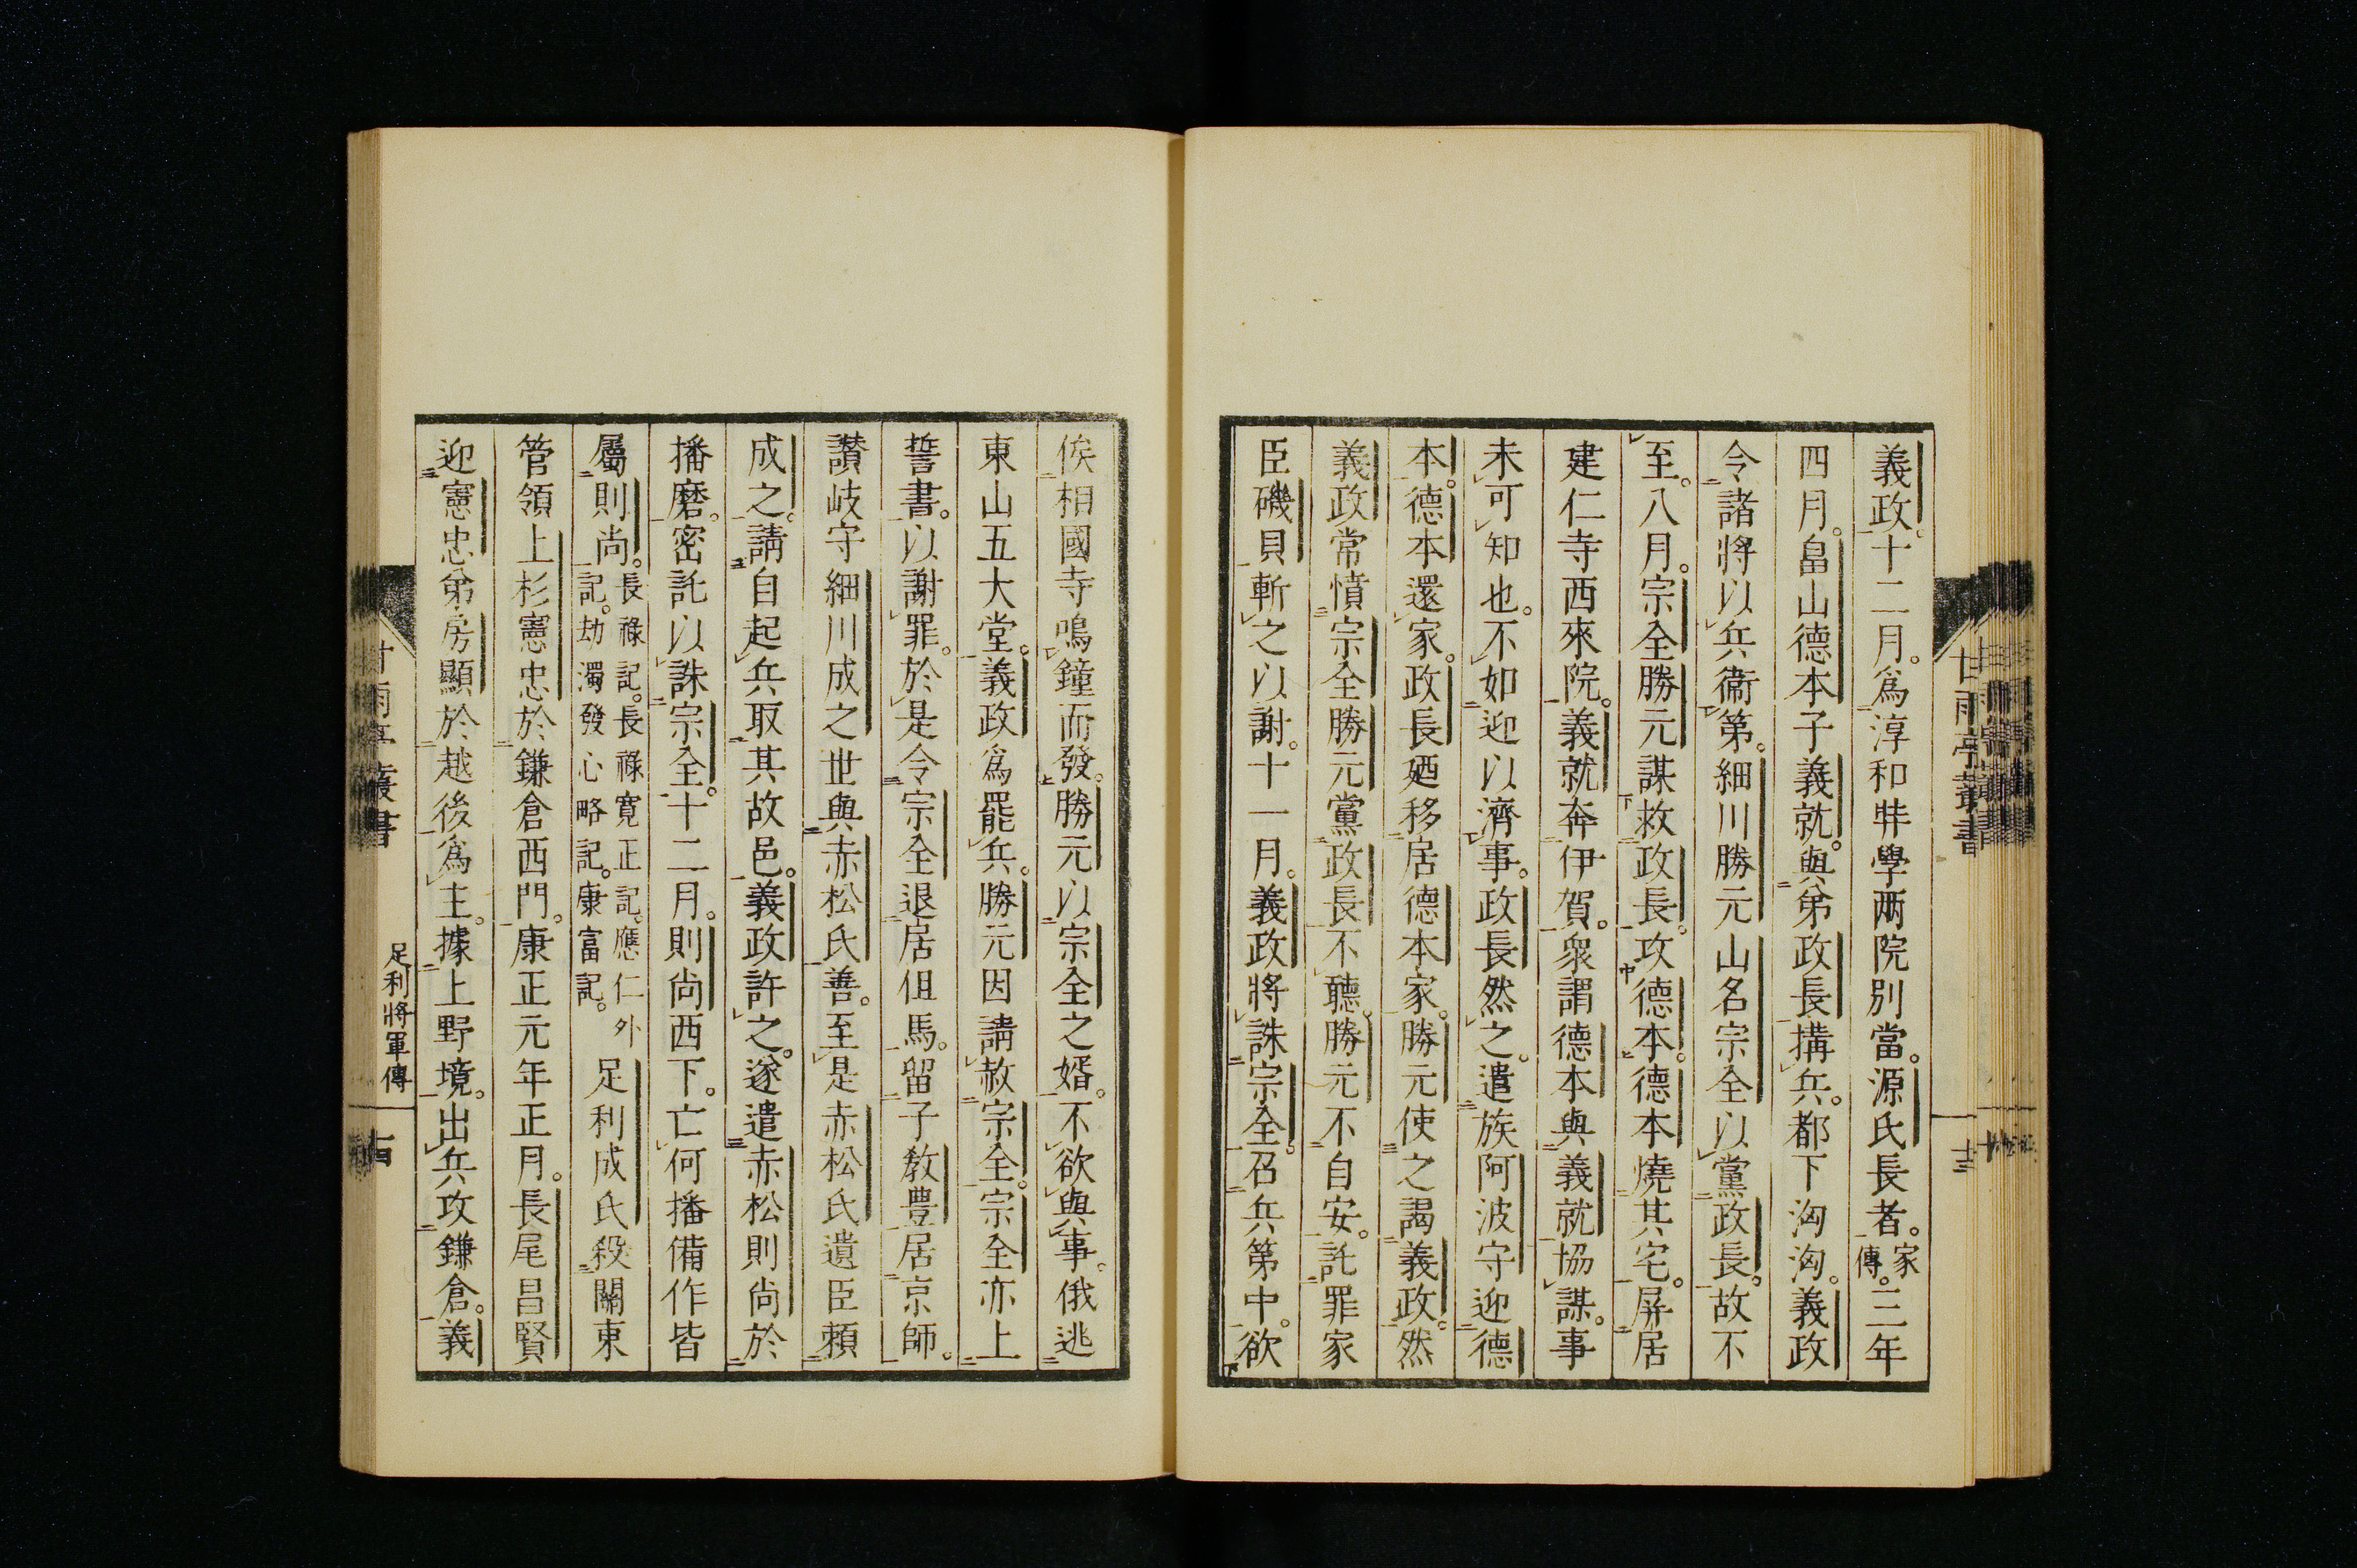 義政。十二月。爲淳和奘學兩院別當。源氏長者。家傳。三年
四月。畠山德本子義就。與弟政長搆兵。都下洶洶。義政
令諸將以兵衞第。細川勝元山名宗全以黨政長。故不
至。八月。宗全勝元謀救政長。攻德本。德本燒其宅。屏居
建仁寺西來院。義就奔伊賀。衆謂德本與義就協謀。事
未可知也。不如迎以濟事。政長然之。遣族阿波守迎德
本。德本還家。政長廼移居德本家。勝元使之謁義政。然
義政常憤宗全勝元黨政長不聽。勝元不自安。託罪家
臣磯貝斬之以謝。十一月。義政將誅宗全。召兵第中。欲
甘雨亭叢書
十三
俟相國寺鳴鐘而發。勝元以宗全之婿。不欲與事。俄逃
東山五大堂。義政爲罷兵。勝元因請赦宗全。宗全亦上
誓書。以謝罪。於是令宗全退居但馬。留子敎豊居京師。
讃岐守細川成之世與赤松氏善。至是赤松氏遺臣頼
成之。請自起兵取其故邑。義政許之。遂遣赤松則尚於
播磨。密託以誅宗全。十二月。則尚西下。亡何播備作皆
屬則尚。長祿記。長祿寛正記。應仁外記。劫濁發心略記。康富記。足利成氏殺關東
管領上杉憲忠於鎌倉西門。康正元年正月。長尾昌賢
迎憲忠弟房顯於越後爲主。據上野境。出兵攻鎌倉。義
甘雨亭叢書
足利將軍傳